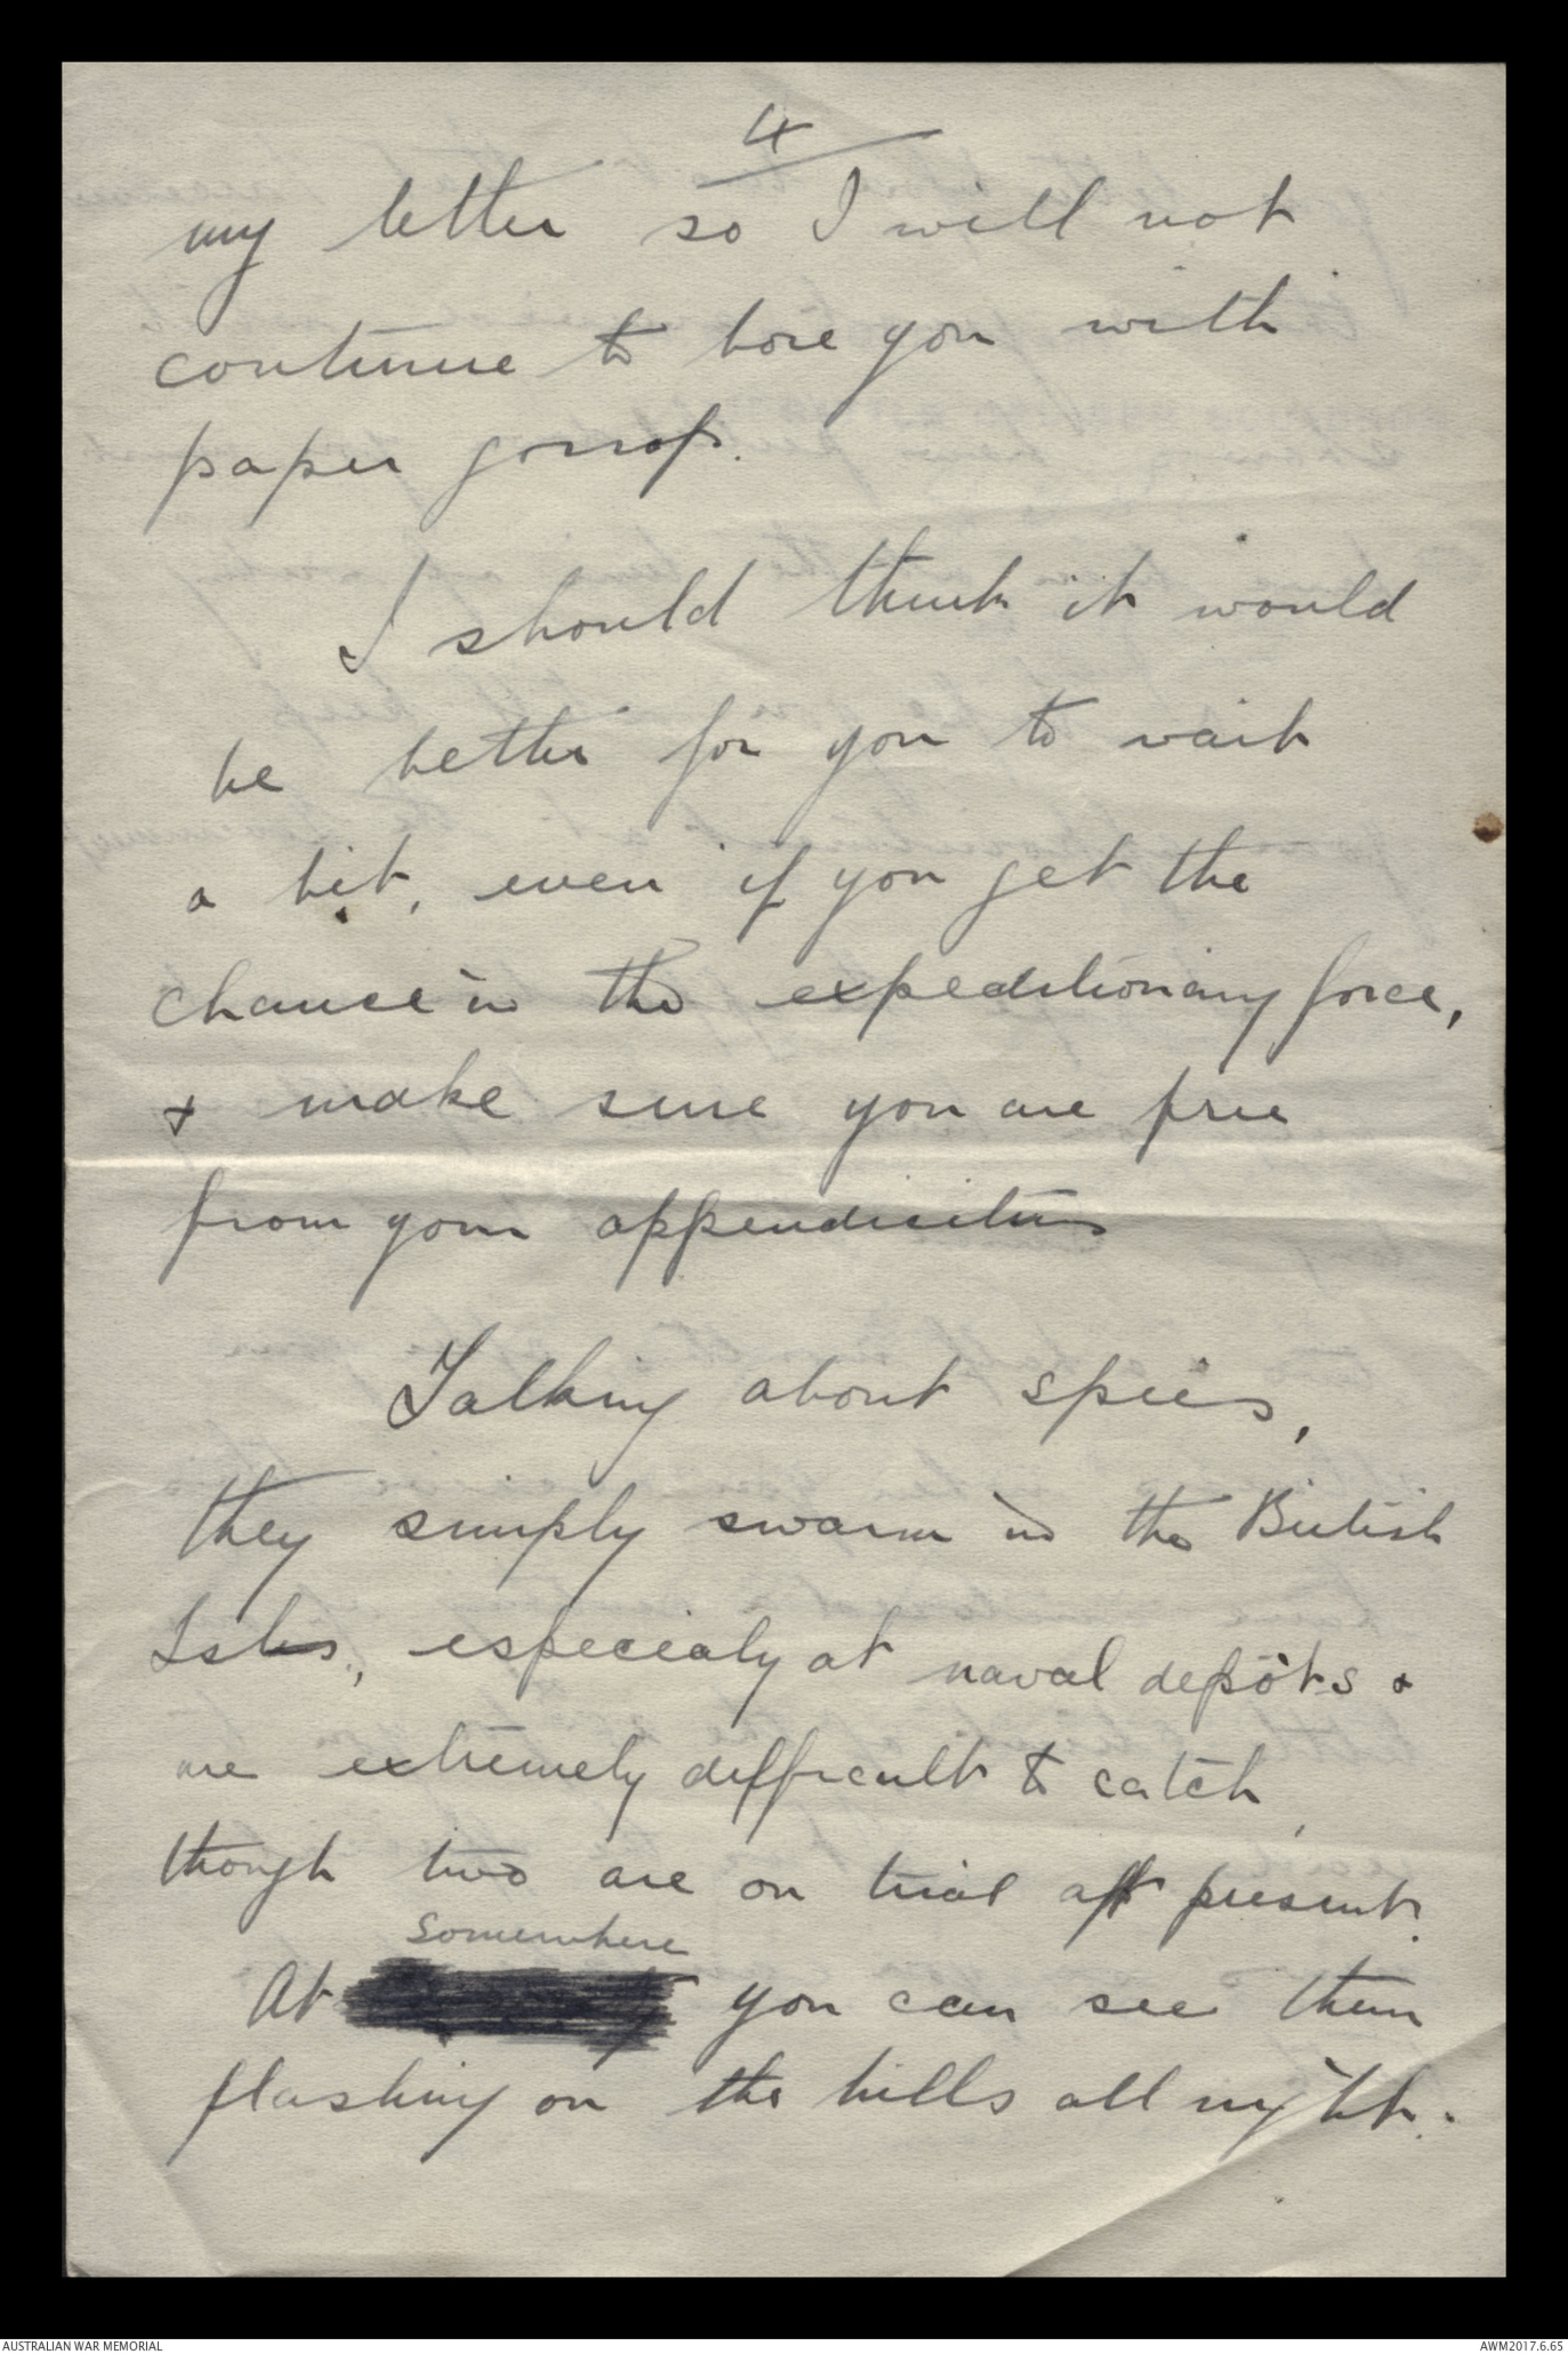 4
my letter so I will not
continue to bore you with
paper gossop.
I should think it would
be better for you to wait
a bit, even if you get the
chance in the expeditionary force,
& make sure you are free
from your appendicitis
Talking about spies,
they simply swarm in the British
Isles, especialy at naval depôts &
are extremely difficult to catch,
though two are on trial at present.
somewhere
At you can see them
flashing on the hills all night.
AUSTRALIAN WAR MEMORIAL
AWM2017.6.65